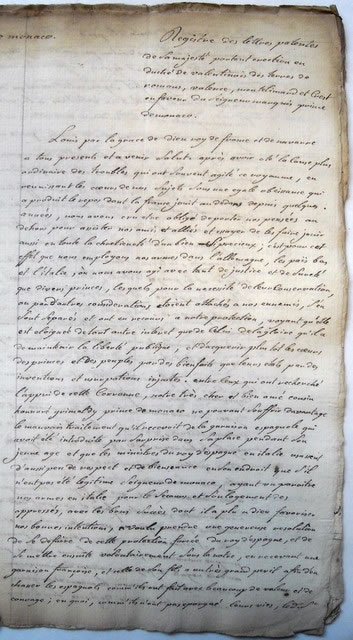 e monaco.
Registre des lettres patentes
de sa majesté portant erection en
duché de valentinois des terres de
romans, valence, montelimard et Crest
en faveur du seigneur marquis prince
de monaco.
Louis par la grace de dieu roy de france et de navarre
a tous presents et a venir Salut, apres avoir oté la cause plus
ordinaire des troubles qui ont souvent agité ce royaume, en
reunissant les coeurs de nos sujets sous une egale obeissance qui
a produit le repos dont la france jouit au dedans depuis quelques
années, nous avons eru estre obligé de porter nos pensées au
dehors pour assister nos amis et alliés et essayer de les faire jouir
aussi ou toute la chretienté d'un bien si precieux; c'est pour cet
effet que nous employons nos armes dans l'allemagne, les païs bas
et l'italie, où nous avons agi avec tant de justice et de
que divers princes, lesquels pour la necessité de leur conservation,
ou par d'autres considerations etoient attachés a nos ennemis, s'en
sont separés et ont eu recours a notre protection, voyant qu'elle
est eloignée de tout autre interest que de celui de la gloire qu'il y a
de maintenir la liberté publique, et d'acquerir plus tot les coeurs
des princes et des peuples par des bienfaits que leurs etats par des
inventions et usurpations injustes. entre ceux qui ont recherché
l'appui de cette Couronne, notre tres cher et bien amé cousin
honoré grimaldy, prince de monaco ne pouvant souffrir davantage
le mauvais traitement qu'il recevoit de la garnison espagnole qui
avoit eté introduite par surprise dans sa place pendant son
jeune age et que les ministres du roy d'espagne en italie usoient
d'aussi peu de respect et de bienseance en son endroit que s'il
n'eut pas eté legitime seigneur de monaco, ayant vu paroitre
nos armes en italie pour le secours et soulagement des
oppressés, avec les bons succés dont il a plu a dieu favoriser
nos bonnes intentions, a voulu prendre une genereuse resolution
de se defaire de cette protection forcée du roy d'espagne, et de
se mettre ensuite volontairement sous la notre, en recevant une
garnison françoise, et celle de son fils, a entré grand peril afin d'en
chasser les espagnols comme ils ont fait avec beaucoup de valeur et de
courage; en quoi, comme ils n'ont pas epargné leurs vies,